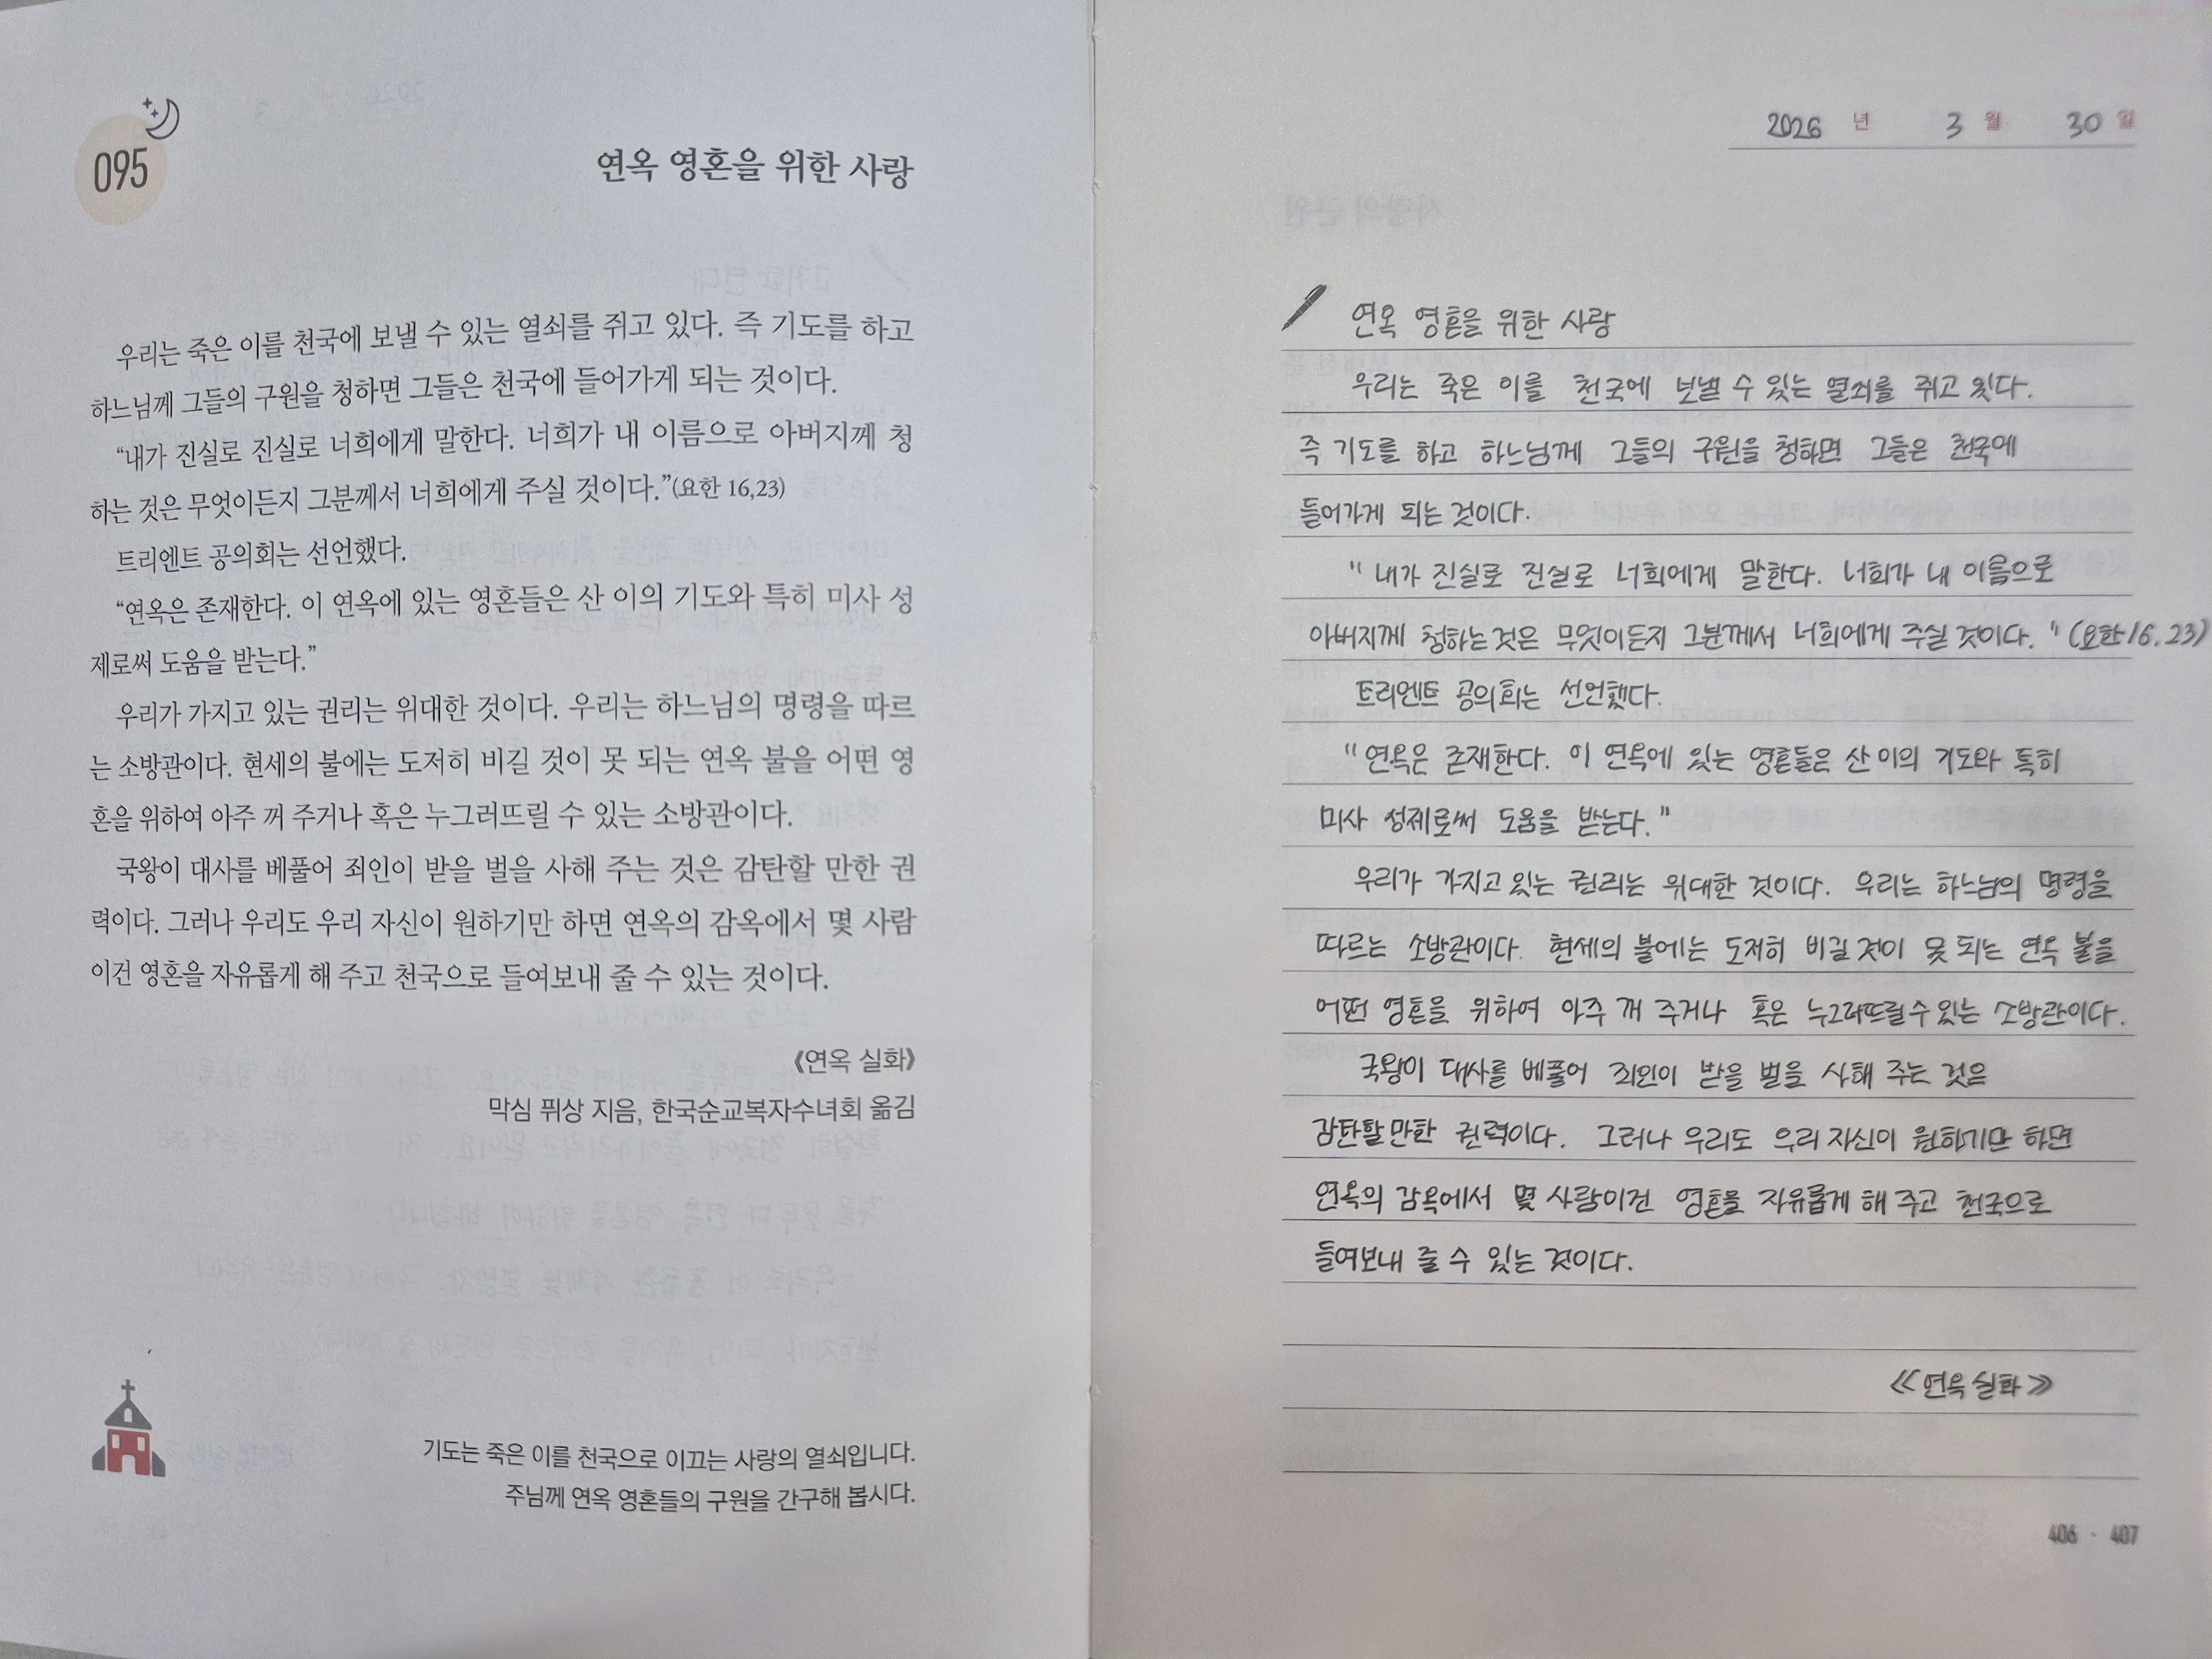 095
연옥 영혼을 위한 사랑
우리는 죽은 이를 천국에 보낼 수 있는 열쇠를 쥐고 있다. 즉 기도를 하고
하느님께 그들의 구원을 청하면 그들은 천국에 들어가게 되는 것이다.
“내가 진실로 진실로 너희에게 말한다. 너희가 내 이름으로 아버지께 청
하는 것은 무엇이든지 그분께서 너희에게 주실 것이다.”(요한 16,23)
트리엔트 공의회는 선언했다.
“연옥은 존재한다. 이 연옥에 있는 영혼들은 산 이의 기도와 특히 미사 성
제로써 도움을 받는다.”
우리가 가지고 있는 권리는 위대한 것이다. 우리는 하느님의 명령을 따르
는 소방관이다. 현세의 불에는 도저히 비길 것이 못 되는 연옥 불을 어떤 영
혼을 위하여 아주 꺼 주거나 혹은 누그러뜨릴 수 있는 소방관이다.
국왕이 대사를 베풀어 죄인이 받을 벌을 사해 주는 것은 감탄할 만한 권
력이다. 그러나 우리도 우리 자신이 원하기만 하면 연옥의 감옥에서 몇 사람
이건 영혼을 자유롭게 해 주고 천국으로 들여보내 줄 수 있는 것이다.
《연옥 실화》
막심 퓌상 지음, 한국순교복자수녀회 옮김
기도는 죽은 이를 천국으로 이끄는 사랑의 열쇠입니다.
주님께 연옥 영혼들의 구원을 간구해 봅시다.
2026 년 3 월 30 일
연옥 영혼을 위한 사랑
우리는 죽은 이를 천국에 보낼 수 있는 열쇠를 쥐고 있다.
즉 기도를 하고 하느님께 그들의 구원을 청하면 그들은 천국에
들어가게 되는 것이다.
" 내가 진실로 진실로 너희에게 말한다. 너희가 내 이름으로
아버지께 청하는 것은 무엇이든지 그분께서 너희에게 주실 것이다. " (요한 16. 23)
트리엔트 공의회는 선언했다.
" 연옥은 존재한다. 이 연옥에 있는 영혼들은 산 이의 기도와 특히
미사 성제로써 도움을 받는다. "
우리가 가지고 있는 권리는 위대한 것이다. 우리는 하느님의 명령을
따르는 소방관이다. 현세의 불에는 도저히 비길 것이 못 되는 연옥 불을
어떤 영혼을 위하여 아주 꺼 주거나 혹은 누그러뜨릴 수 있는 소방관이다.
국왕이 대사를 베풀어 죄인이 받을 벌을 사해 주는 것은
감탄할 만한 권력이다. 그러나 우리도 우리 자신이 원하기만 하면
연옥의 감옥에서 몇 사람이건 영혼을 자유롭게 해 주고 천국으로
들여보내 줄 수 있는 것이다.
≪연옥 실화≫
406 · 407